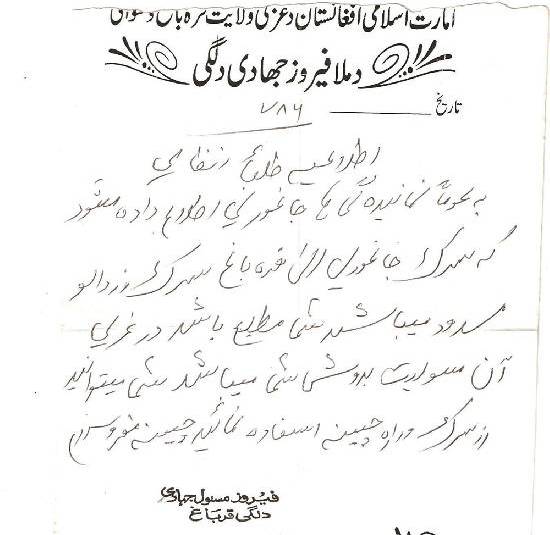 امارت اسلامی افغانستان د غزنی ولایت قره باغ
د ملا فیروز جهادی دلگی
تاریخ
۷۸۶
اطلاعیه طلبأ نظامی
به عموماً نمانیده گی ها جاغوری اطلاع داده میشود
که سرک جاغوری الی قره باغ سرک زردالو
مسدود میباشد شما مطلع باشد در غیر
آن مسولیت بدوش شما میباشد شما میتوانید
از سرک و راه چینه استفاده نمائید چینه
فیروز مسئول جهادی
دلگی قرباغ